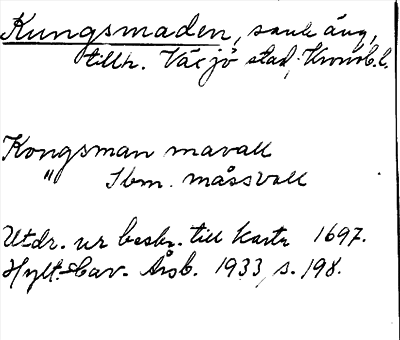 Kungsmaden, sank äng,
tillh. Växjö stad, Kronob. l.
Kongsman mavall
" Ibm. måssvall
Utdr. ur beskr. till karta 1697.
Hylt.-Cav. Årsb. 1933, s. 198.